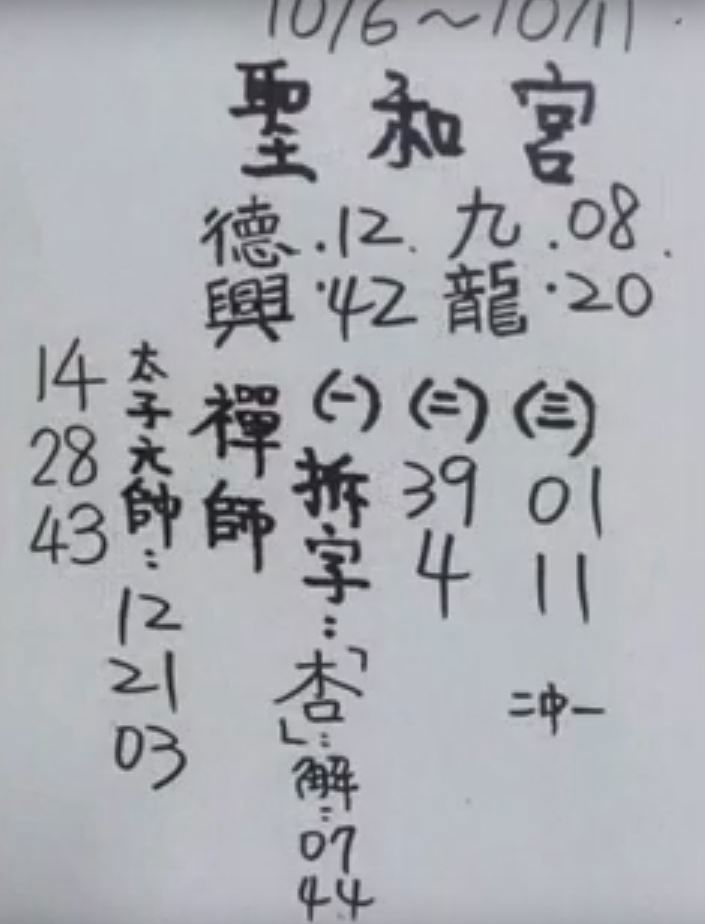 10/6～10/11
聖和宮
德興 .12. .42
九龍 .08. .20
禪師
(一)
拆字:「杏」:解:07 44
(二)
39
4
(三)
01
11
二中一
太子元帥:
12
21
03
14
28
43